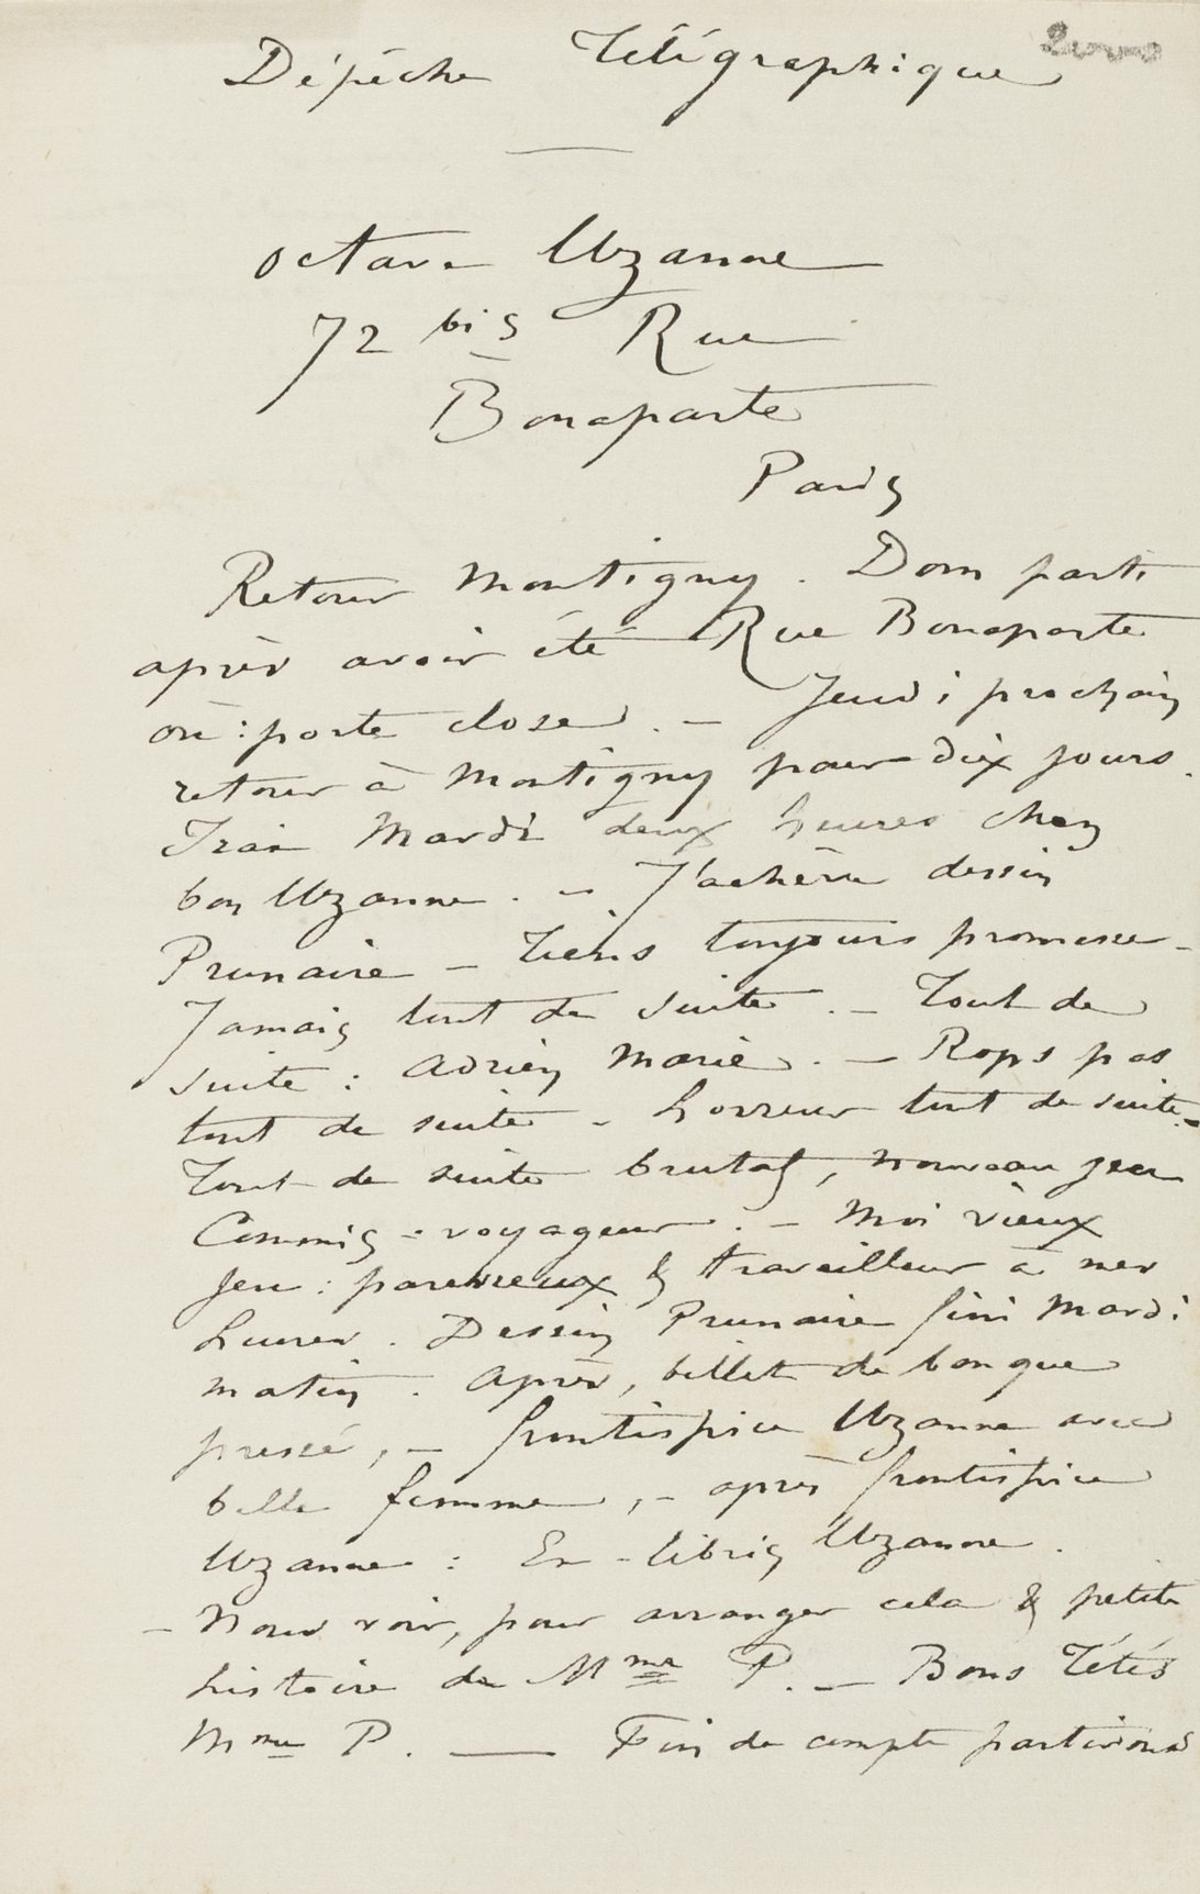 Dépêche Télégraphique
Octave Uzanne
72 bis Rue
Bonaparte
Paris
Retour Montigny. Dom parti
après avoir été Rue Bonaparte
où : porte close. – Jeudi prochain
retour à Montigny pour dix jours.
Irai Mardi deux heures chez
bon Uzanne. – J'achève dessin
Prunaire – Tiens toujours promesse –
Jamais tout de suite. – Tout de
suite : Adrien Marie. – Rops pas
tout de suite – horreur tout de suite –
Tout de suite brutal, nouveau jeu
Commis-voyageur. – Moi vieux
jeu : paresseux & travailleur à mes
heures. Dessin Prunaire fini Mardi
matin. Après, billet de banque
pressé, – frontispice Uzanne avec
belle femme, – après frontispice
Uzanne : Ex-libris Uzanne.
– Nous voir, pour arranger cela & petite
histoire de Mme P. – Bons Tétés
Mme P. — Fin de compte partirons